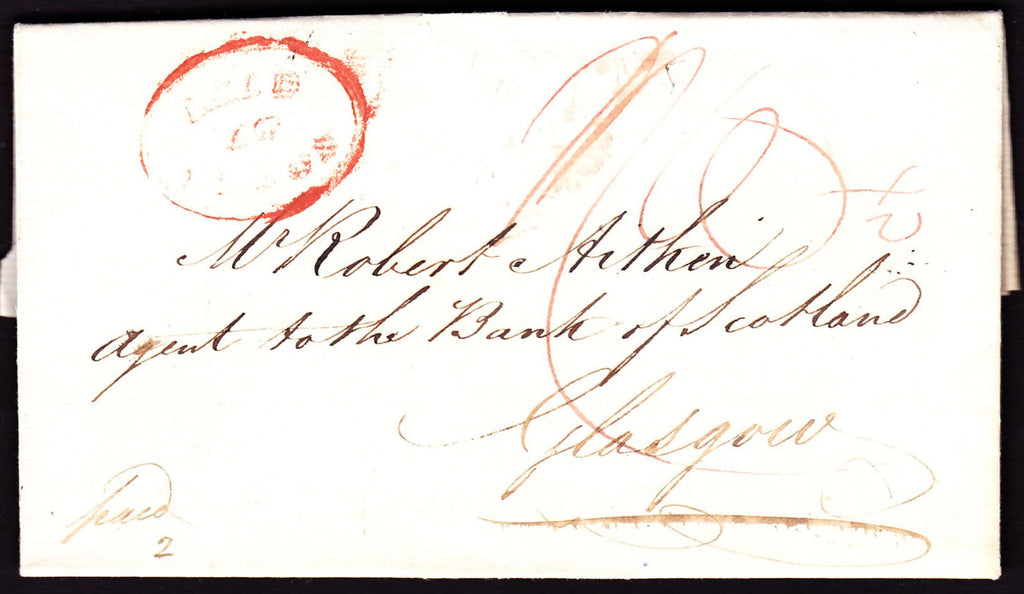 Mr Robert Aitken
Agent to the Bank of Scotland
Glasgow
paid
2